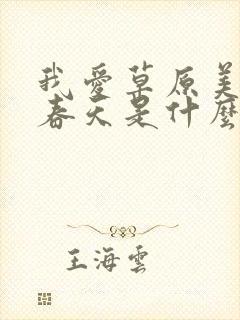 我愛草原美
春天是什麼
王海雲